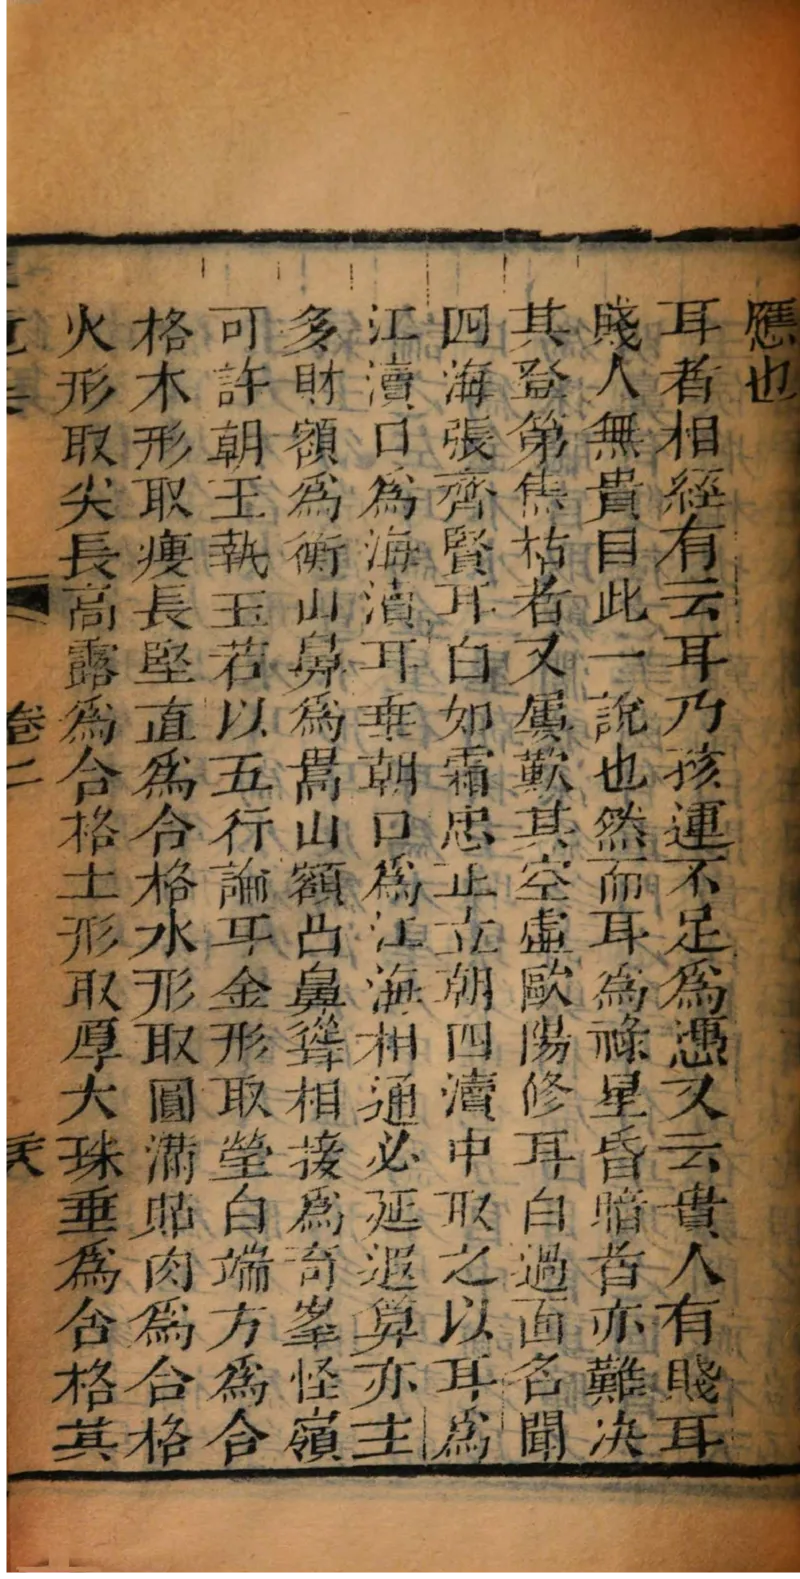 應也
耳者相經有云耳乃孩運不足爲憑又云貴人有賤耳
賤人無貴目此一說也然而耳爲祿星昏暗者亦難决
其登第焦枯者又屢歎其空虛歐陽修耳白過面名聞
四海張齊賢耳白如霜忠正立朝四瀆中取之以耳爲
江瀆口爲海瀆耳垂朝口爲江海相通必延遐算亦主
多財額爲衡山鼻爲嵩山額凸鼻聳相接爲奇峯怪嶺
可許朝王執玉若以五行論耳金形取瑩白端方爲合
格木形取瘦長堅直爲合格水形取圓满貼肉爲合格
火形取尖長高露爲合格土形取厚大珠垂爲合格其
卷二